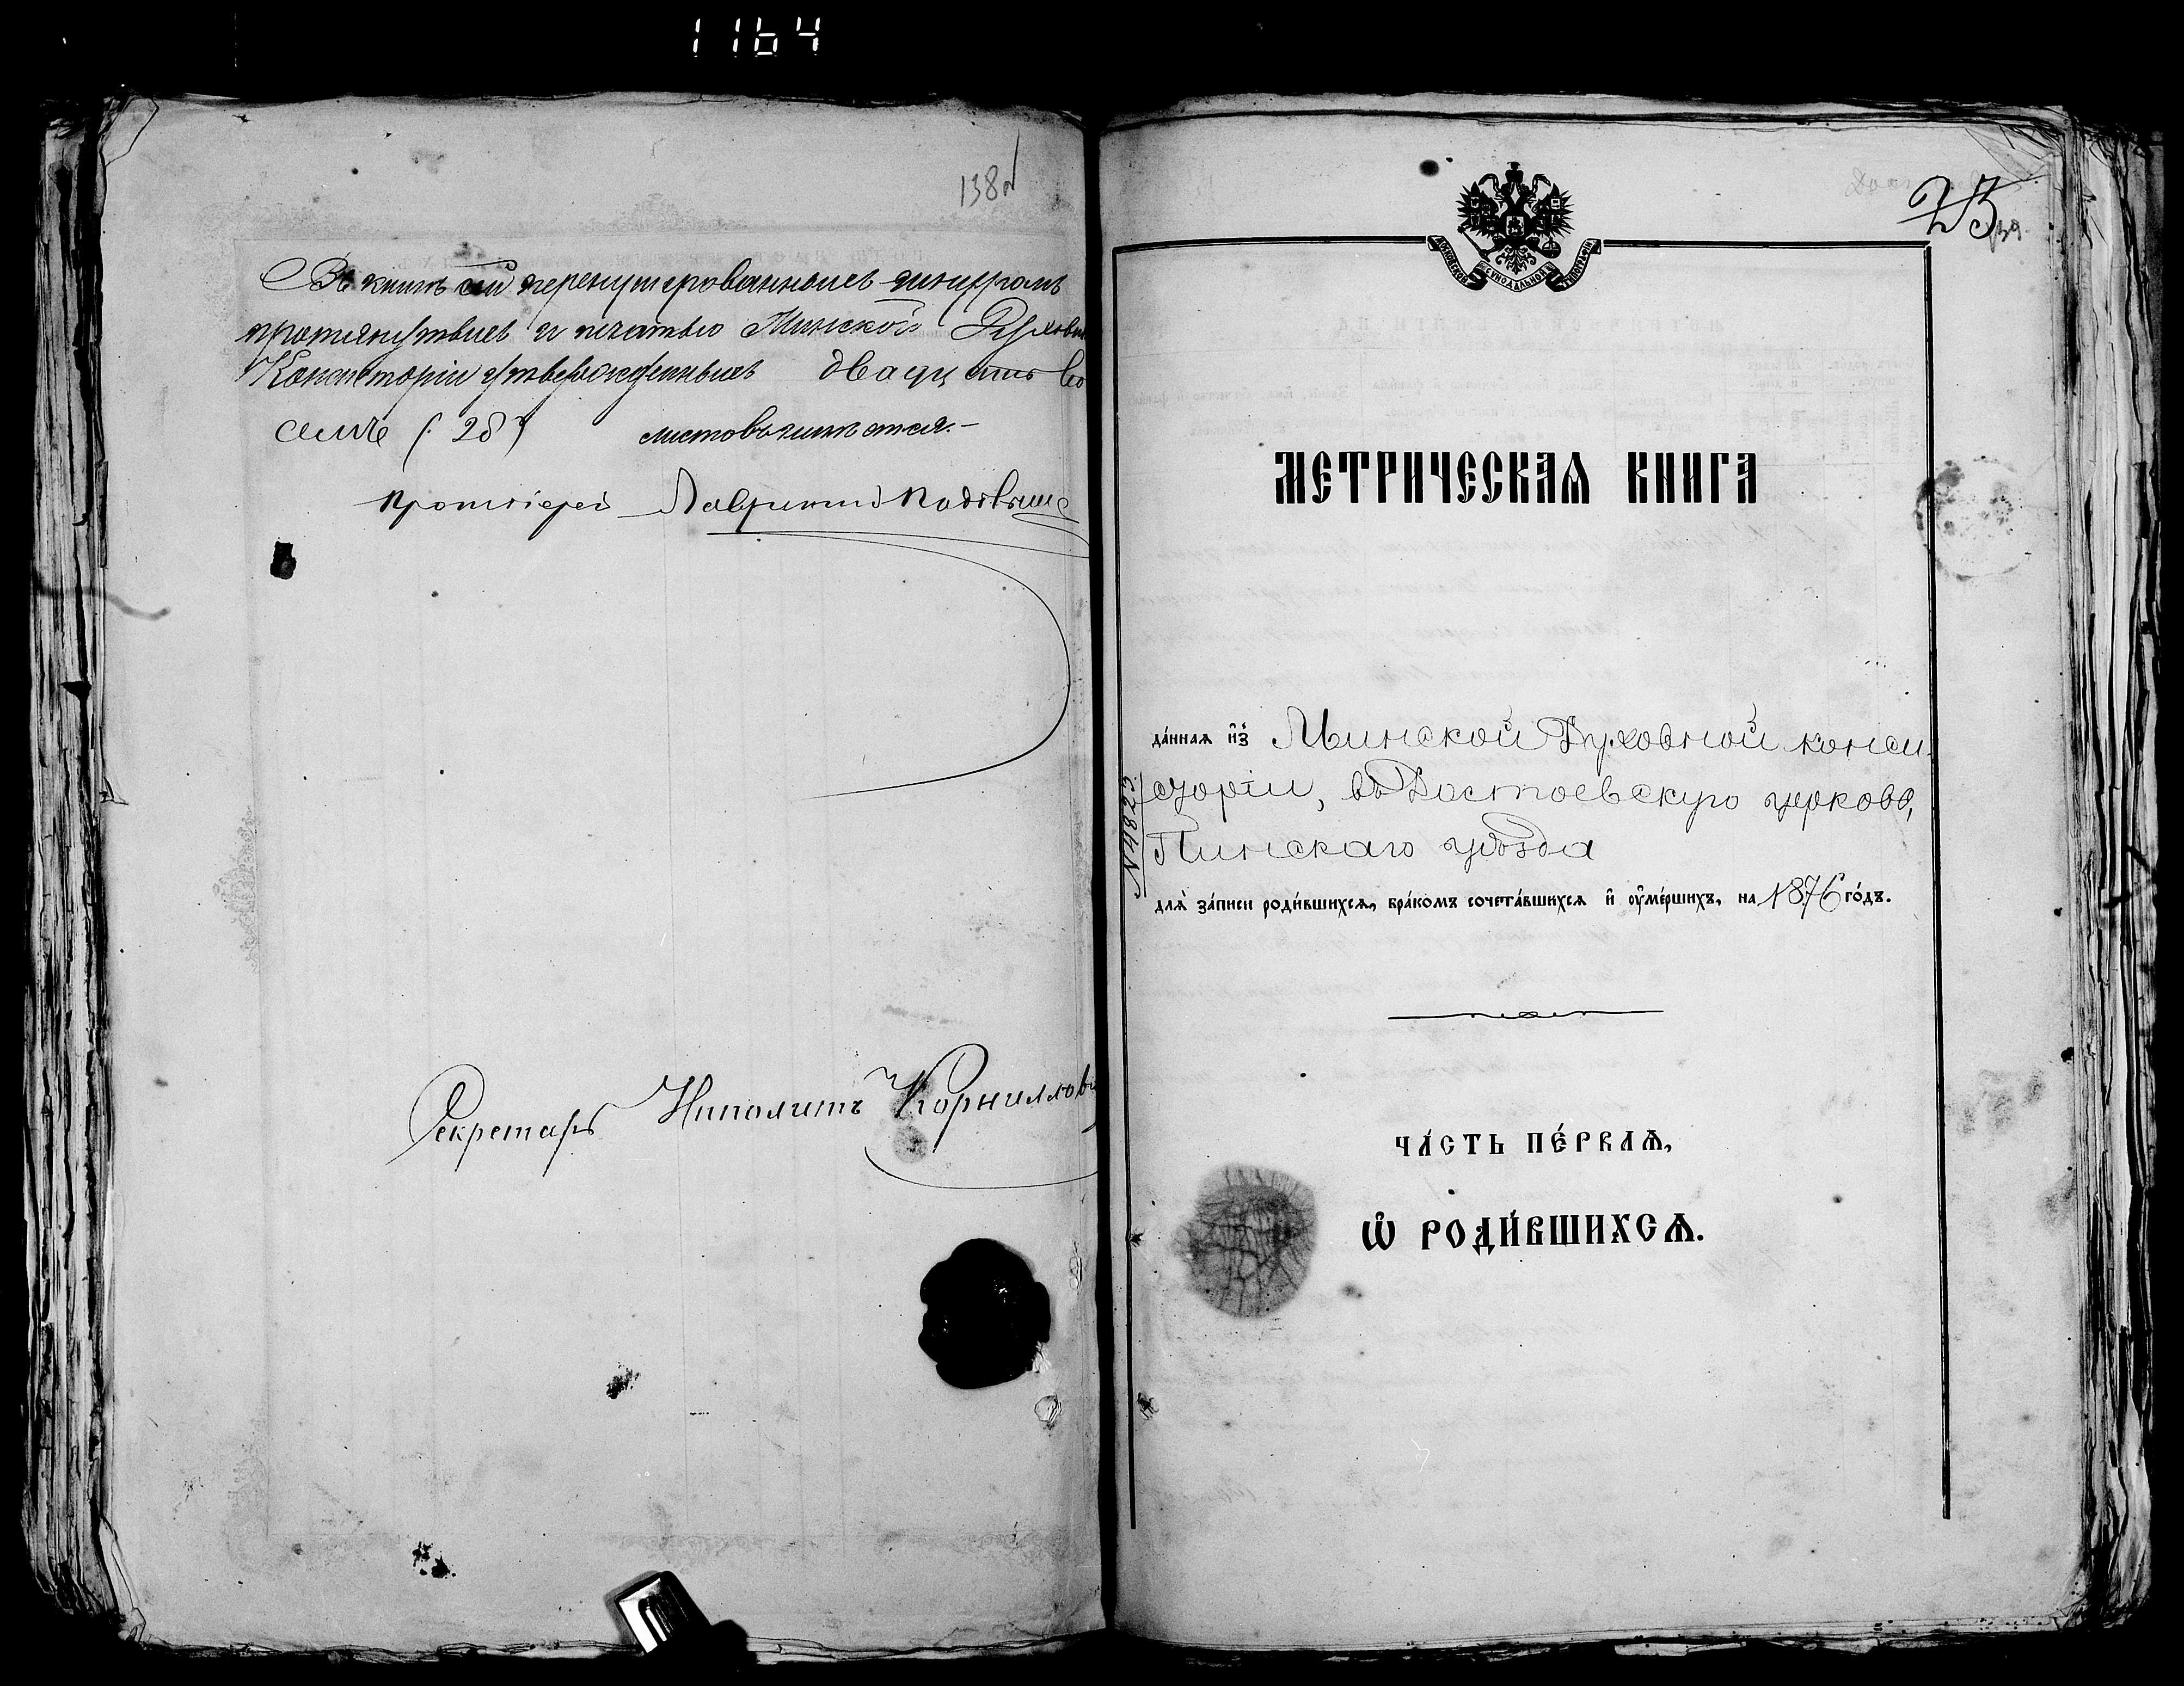 1164
138
Въ книгѣ сей перенумерованныхъ
протянутыхъ и печатью Минской Духовн
Консисторіи утвержденныхъ двадцать во
семь (28) листовъ имѣется.-
Протоіерей
Секретарь Ипполитъ Корнилов
25
139
МОСКОВСКОЙ СѴНОДАЛЬНОЙ ТИПОГРАФІИ
МЕТРИЧЕСКАѦ КНИГА
да́ннаѧ и҆з̾ Минской Духовной конси-
сторіи, въ Достоевскую церковь,
Пинскаго уѣзда
№4823.
для̀ за́писи роди́вшихсѧ, бра́комъ сочета́вшихсѧ и҆ ᲂу҆ме́ршихъ, на 1876 го́дъ.
ЧА́СТЬ ПЕ́РВАѦ,
Ѡ҆ РОДИ́ВШИХСѦ.